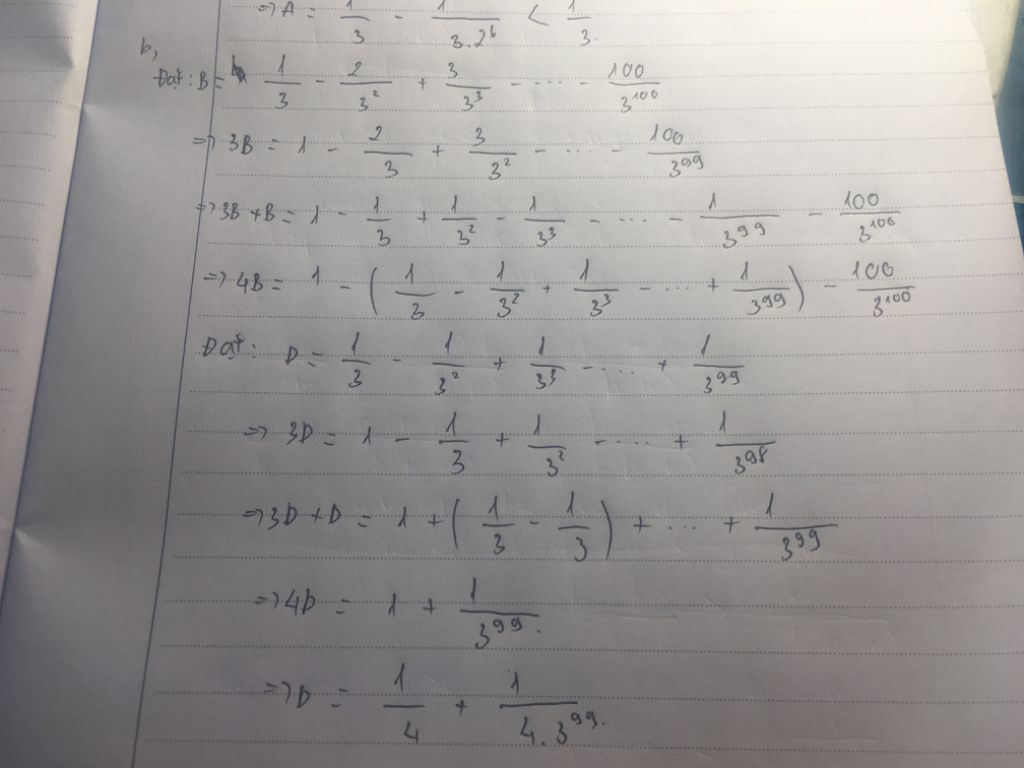 => A = 1/3 - 1/(3.2^6) < 1/3.
b,
Đặt: B = 1/3 - 2/3^2 + 3/3^3 - .... - 100/3^100
=> 3B = 1 - 2/3 + 3/3^2 - ... - 100/3^99
=> 3B + B = 1 - 1/3 + 1/3^2 - 1/3^3 - .... - 1/3^99 - 100/3^100
=> 4B = 1 - (1/3 - 1/3^2 + 1/3^3 - ... + 1/3^99) - 100/3^100
Đặt: D = 1/3 - 1/3^2 + 1/3^3 - .... + 1/3^99
=> 3D = 1 - 1/3 + 1/3^2 - .... + 1/3^98
=> 3D + D = 1 + (1/3 - 1/3) + ... + 1/3^99
=> 4D = 1 + 1/3^99.
=> D = 1/4 + 1/(4.3^99).